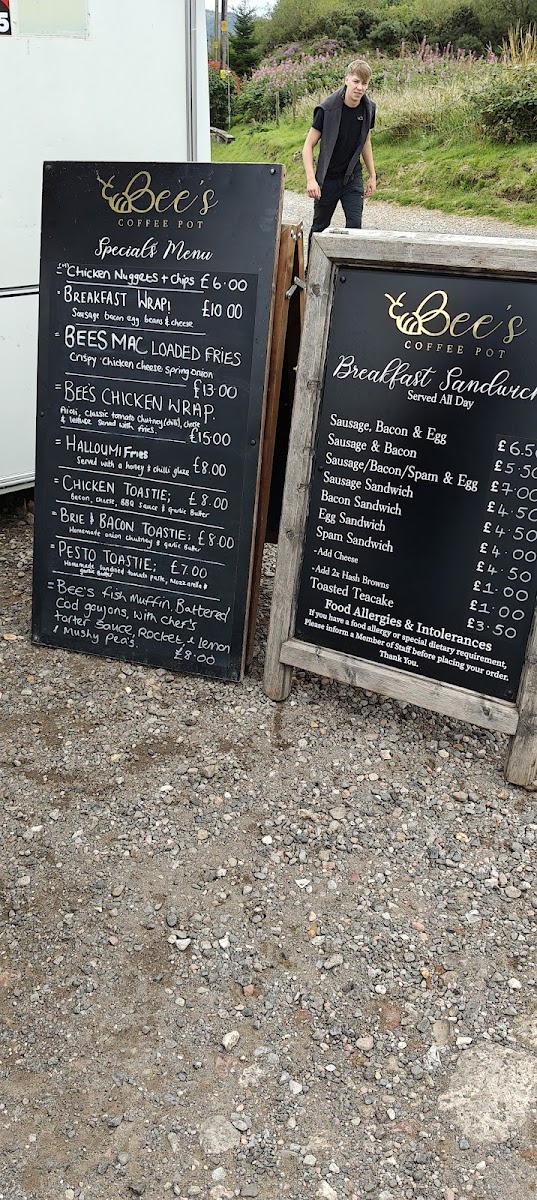 5
Bee's
COFFEE POT
Specials Menu
Chicken Nuggets + Chips £6.00
BREAKFAST WRAP! £10.00
Sausage bacon egg beans & cheese
= BEES MAC LOADED FRIES
Crispy Chicken cheese spring onion
£13.00
= BEE'S CHICKEN WRAP.
Aioli, classic tomato chutney (chilli), cheese
& lettuce served with fries. £15.00
= HALLOUMI FRIES
Served with a honey & chilli glaze £8.00
= CHICKEN TOASTIE; £8.00
Bacon, cheese, BBQ Sauce & Garlic Butter
= BRIE & BACON TOASTIE; £8.00
Homemade onion chutney & garlic Butter
= PESTO TOASTIE; £7.00
Homemade sundried tomato paste, Mozzarella &
garlic Butter
= Bee's fish Muffin. Battered
Cod goujons, with chef's
tarter Sauce, Rocket, & lemon
& Mushy Pea's. £8.00
Bee's
COFFEE POT
Breakfast Sandwich
Served All Day
Sausage, Bacon & Egg £6.50
Sausage & Bacon £5.50
Sausage/Bacon/Spam & Egg £7.00
Sausage Sandwich £4.50
Bacon Sandwich £4.50
Egg Sandwich £4.00
Spam Sandwich £4.50
-Add Cheese £1.00
-Add 2x Hash Browns £1.00
Toasted Teacake £3.50
Food Allergies & Intolerances
If you have a food allergy or special dietary requirement,
Please inform a Member of Staff before placing your order.
Thank You.